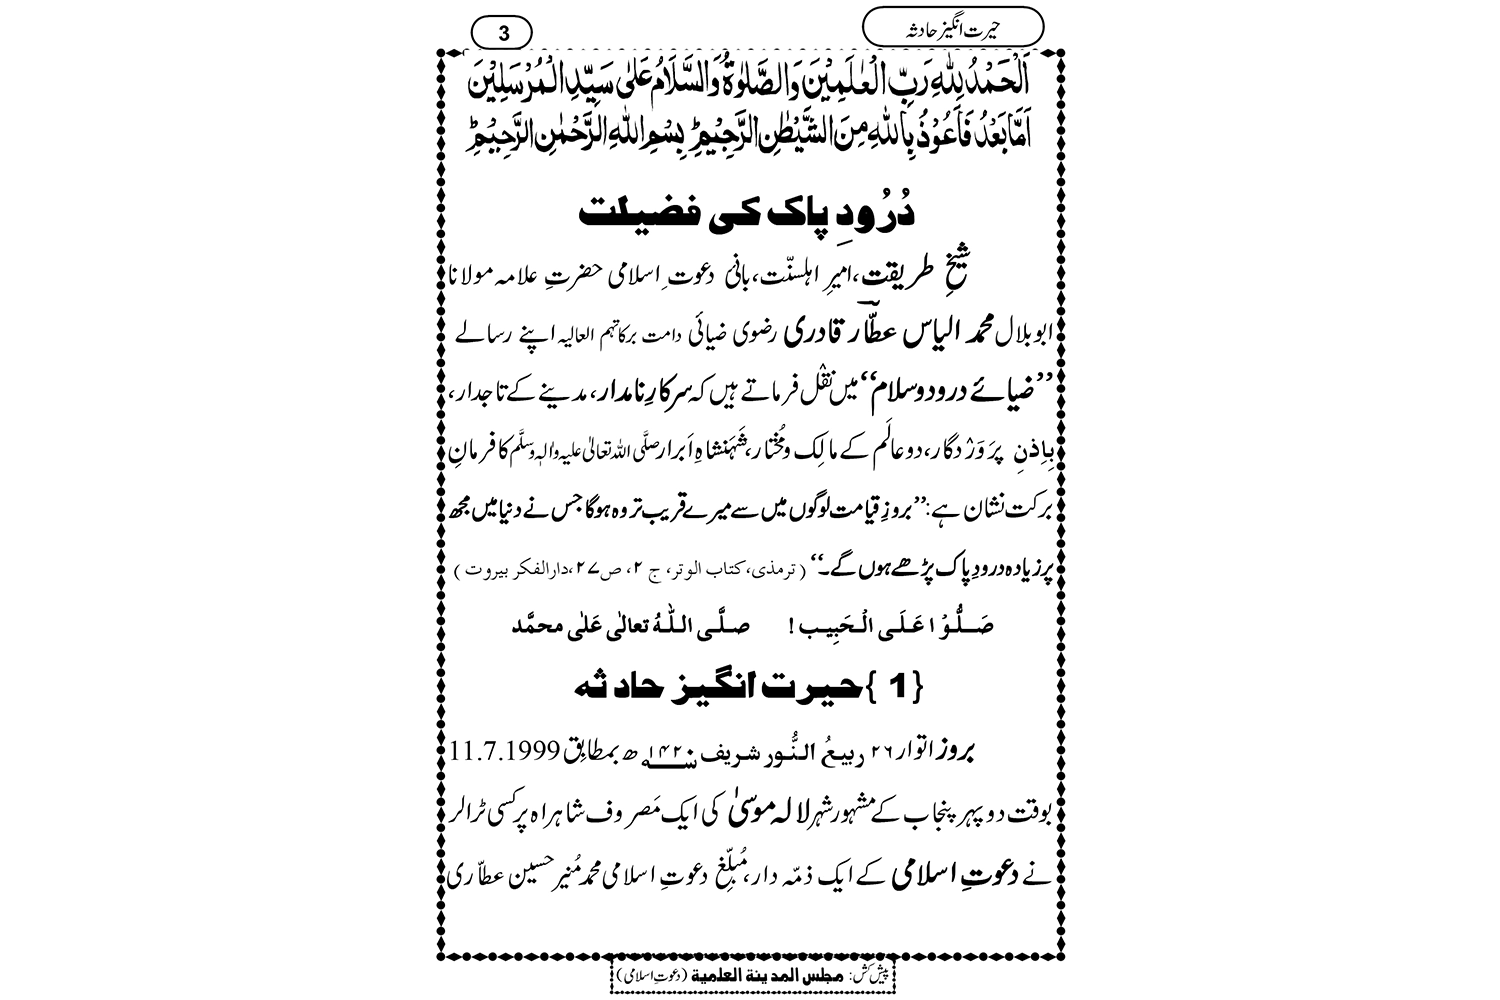 حیرت انگیز حادثہ
3
اَلْحَمْدُ لِلّٰہِ رَبِّ الْعٰلَمِیْنَ وَالصَّلٰوۃُ وَالسَّلَامُ عَلٰی سَیِّدِ الْمُرْسَلِیْنَ
اَمَّا بَعْدُ فَاَعُوْذُ بِاللّٰہِ مِنَ الشَّیْطٰنِ الرَّجِیْمِؕ بِسْمِ اللّٰہِ الرَّحْمٰنِ الرَّحِیْمِؕ
دُرُودِ پاک کی فضیلت
شیخِ طریقت، امیرِ اہلسنّت، بانیٔ دعوتِ اسلامی حضرتِ علامہ مولانا
ابو بلال محمد الیاس عطّار قادری رضوی ضیائی دامت برکاتہم العالیہ اپنے رسالے
’’ضیائے درود و سلام‘‘ میں نقْل فرماتے ہیں کہ سرکارِ نامدار، مدینے کے تاجدار،
بِاِذنِ پرَوَرْدگار، دو عالَم کے مالِک و مُختار، شَہَنشاہِ اَبرار صلَّی اللہ تعالیٰ علیہ واٰلہٖ وسلَّم کا فرمانِ
برکت نشان ہے: ’’بروزِ قیامت لوگوں میں سے میرے قریب تر وہ ہوگا جس نے دنیا میں مجھ
پر زیادہ درودِ پاک پڑھے ہوں گے۔‘‘ (ترمذی، کتاب الوتر، ج ۲، ص ۲۷، دارالفکر بیروت)
صَلُّوْا عَلَی الْحَبِیب! صلَّی اللّٰہُ تعالٰی عَلٰی محمَّد
{1} حیرت انگیز حادثہ
بروز اتوار ۲۶ ربیعُ النُّور شریف ۱۴۲۰؁ ھ بمطابِق 11.7.1999
بوقت دوپہر پنجاب کے مشہور شہر لالہ موسیٰ کی ایک مَصروف شاہراہ پر کسی ٹرالر
نے دعوتِ اسلامی کے ایک ذمّہ دار، مُبلِّغِ دعوتِ اسلامی محمد مُنیر حسین عطّاری
پیش کش: مجلس المدینة العلمیة (دعوتِ اسلامی)